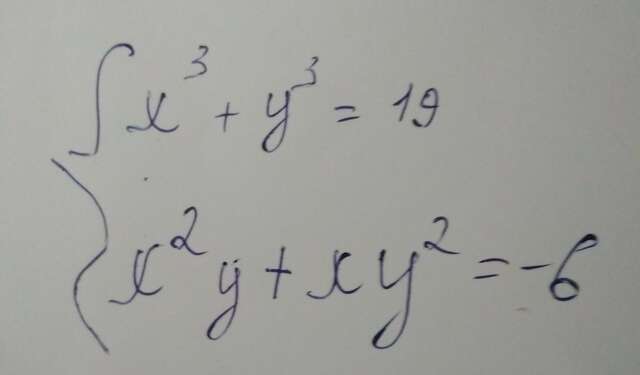 x³ + y³ = 19
x²y + xy² = -6